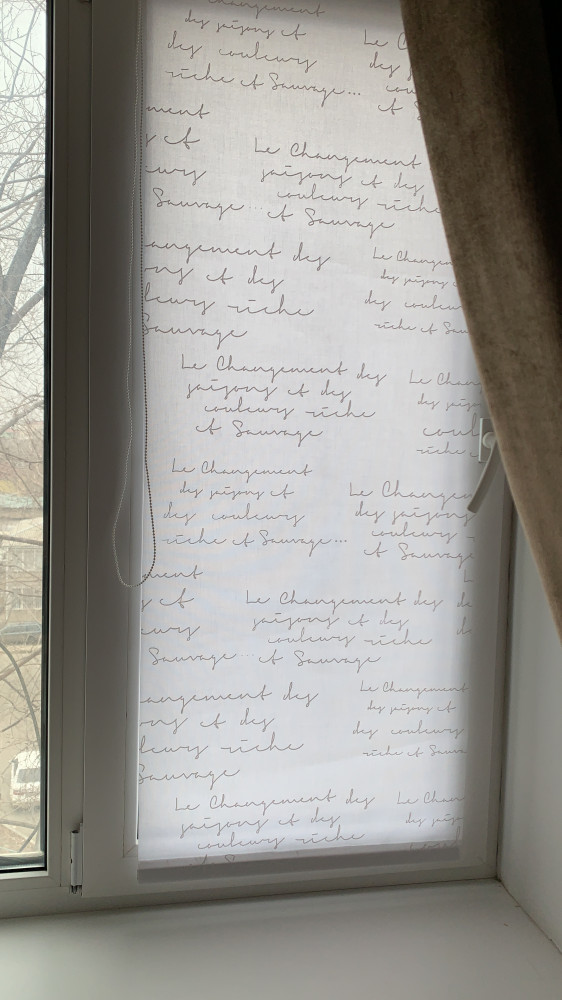 Changement
des saisons et
des couleurs
riche et Sauvage...
Le C
des
cou
et S
ment
s et
eurs
Sauvage...
Le Changement
saisons et des
couleurs riche
et Sauvage
angement des
ons et des
leurs riche
Sauvage
Le Changem
des saisons e
des couleur
riche et Sau
Le Changement des
saisons et des
couleurs riche
et Sauvage
Le Chan
des sais
coul
riche
Le Changement
des saisons et
des couleurs
riche et Sauvage...
Le Changemen
des saisons
couleurs
et Sauvage
ment
s et
eurs
Sauvage...
Le Changement des
saisons et des
couleurs riche
et Sauvage
L
de
de
angement des
ons et des
leurs riche
Sauvage
Le Changement
des saisons et
des couleurs
riche et Sauva
Le Changement des
saisons et des
couleurs riche
Le Chan
des sais